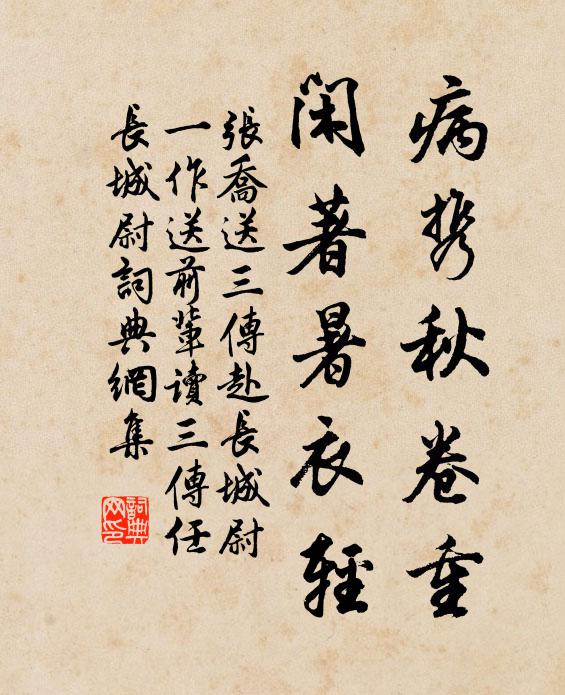 病携秋卷重
闲著暑衣輕
張喬送三傳赴長城尉
一作送前輩讀三傳任
長城尉詞典網集
詞典
网印